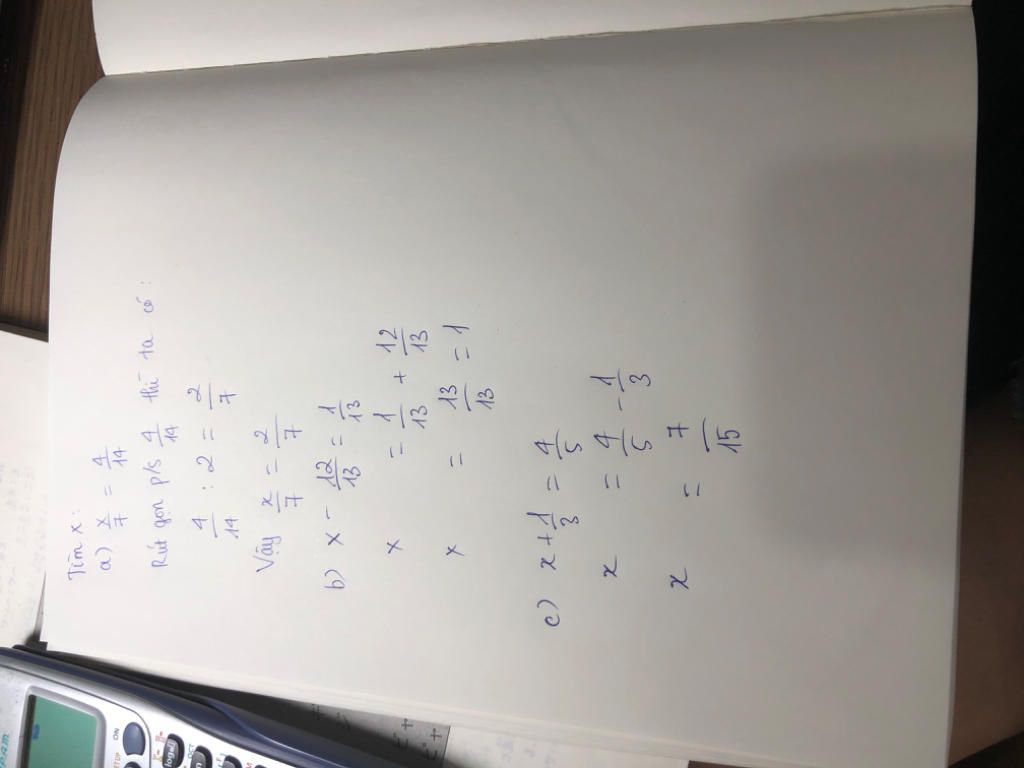 Tìm x:
a) x/7 = 4/14
Rút gọn p/s 4/14 thì ta có:
4/14 : 2 = 2/7
Vậy x/7 = 2/7
b) x - 12/13 = 1/13
x = 1/13 + 12/13
x = 13/13 = 1
c) x + 1/3 = 4/5
x = 4/5 - 1/3
x = 7/15
ON